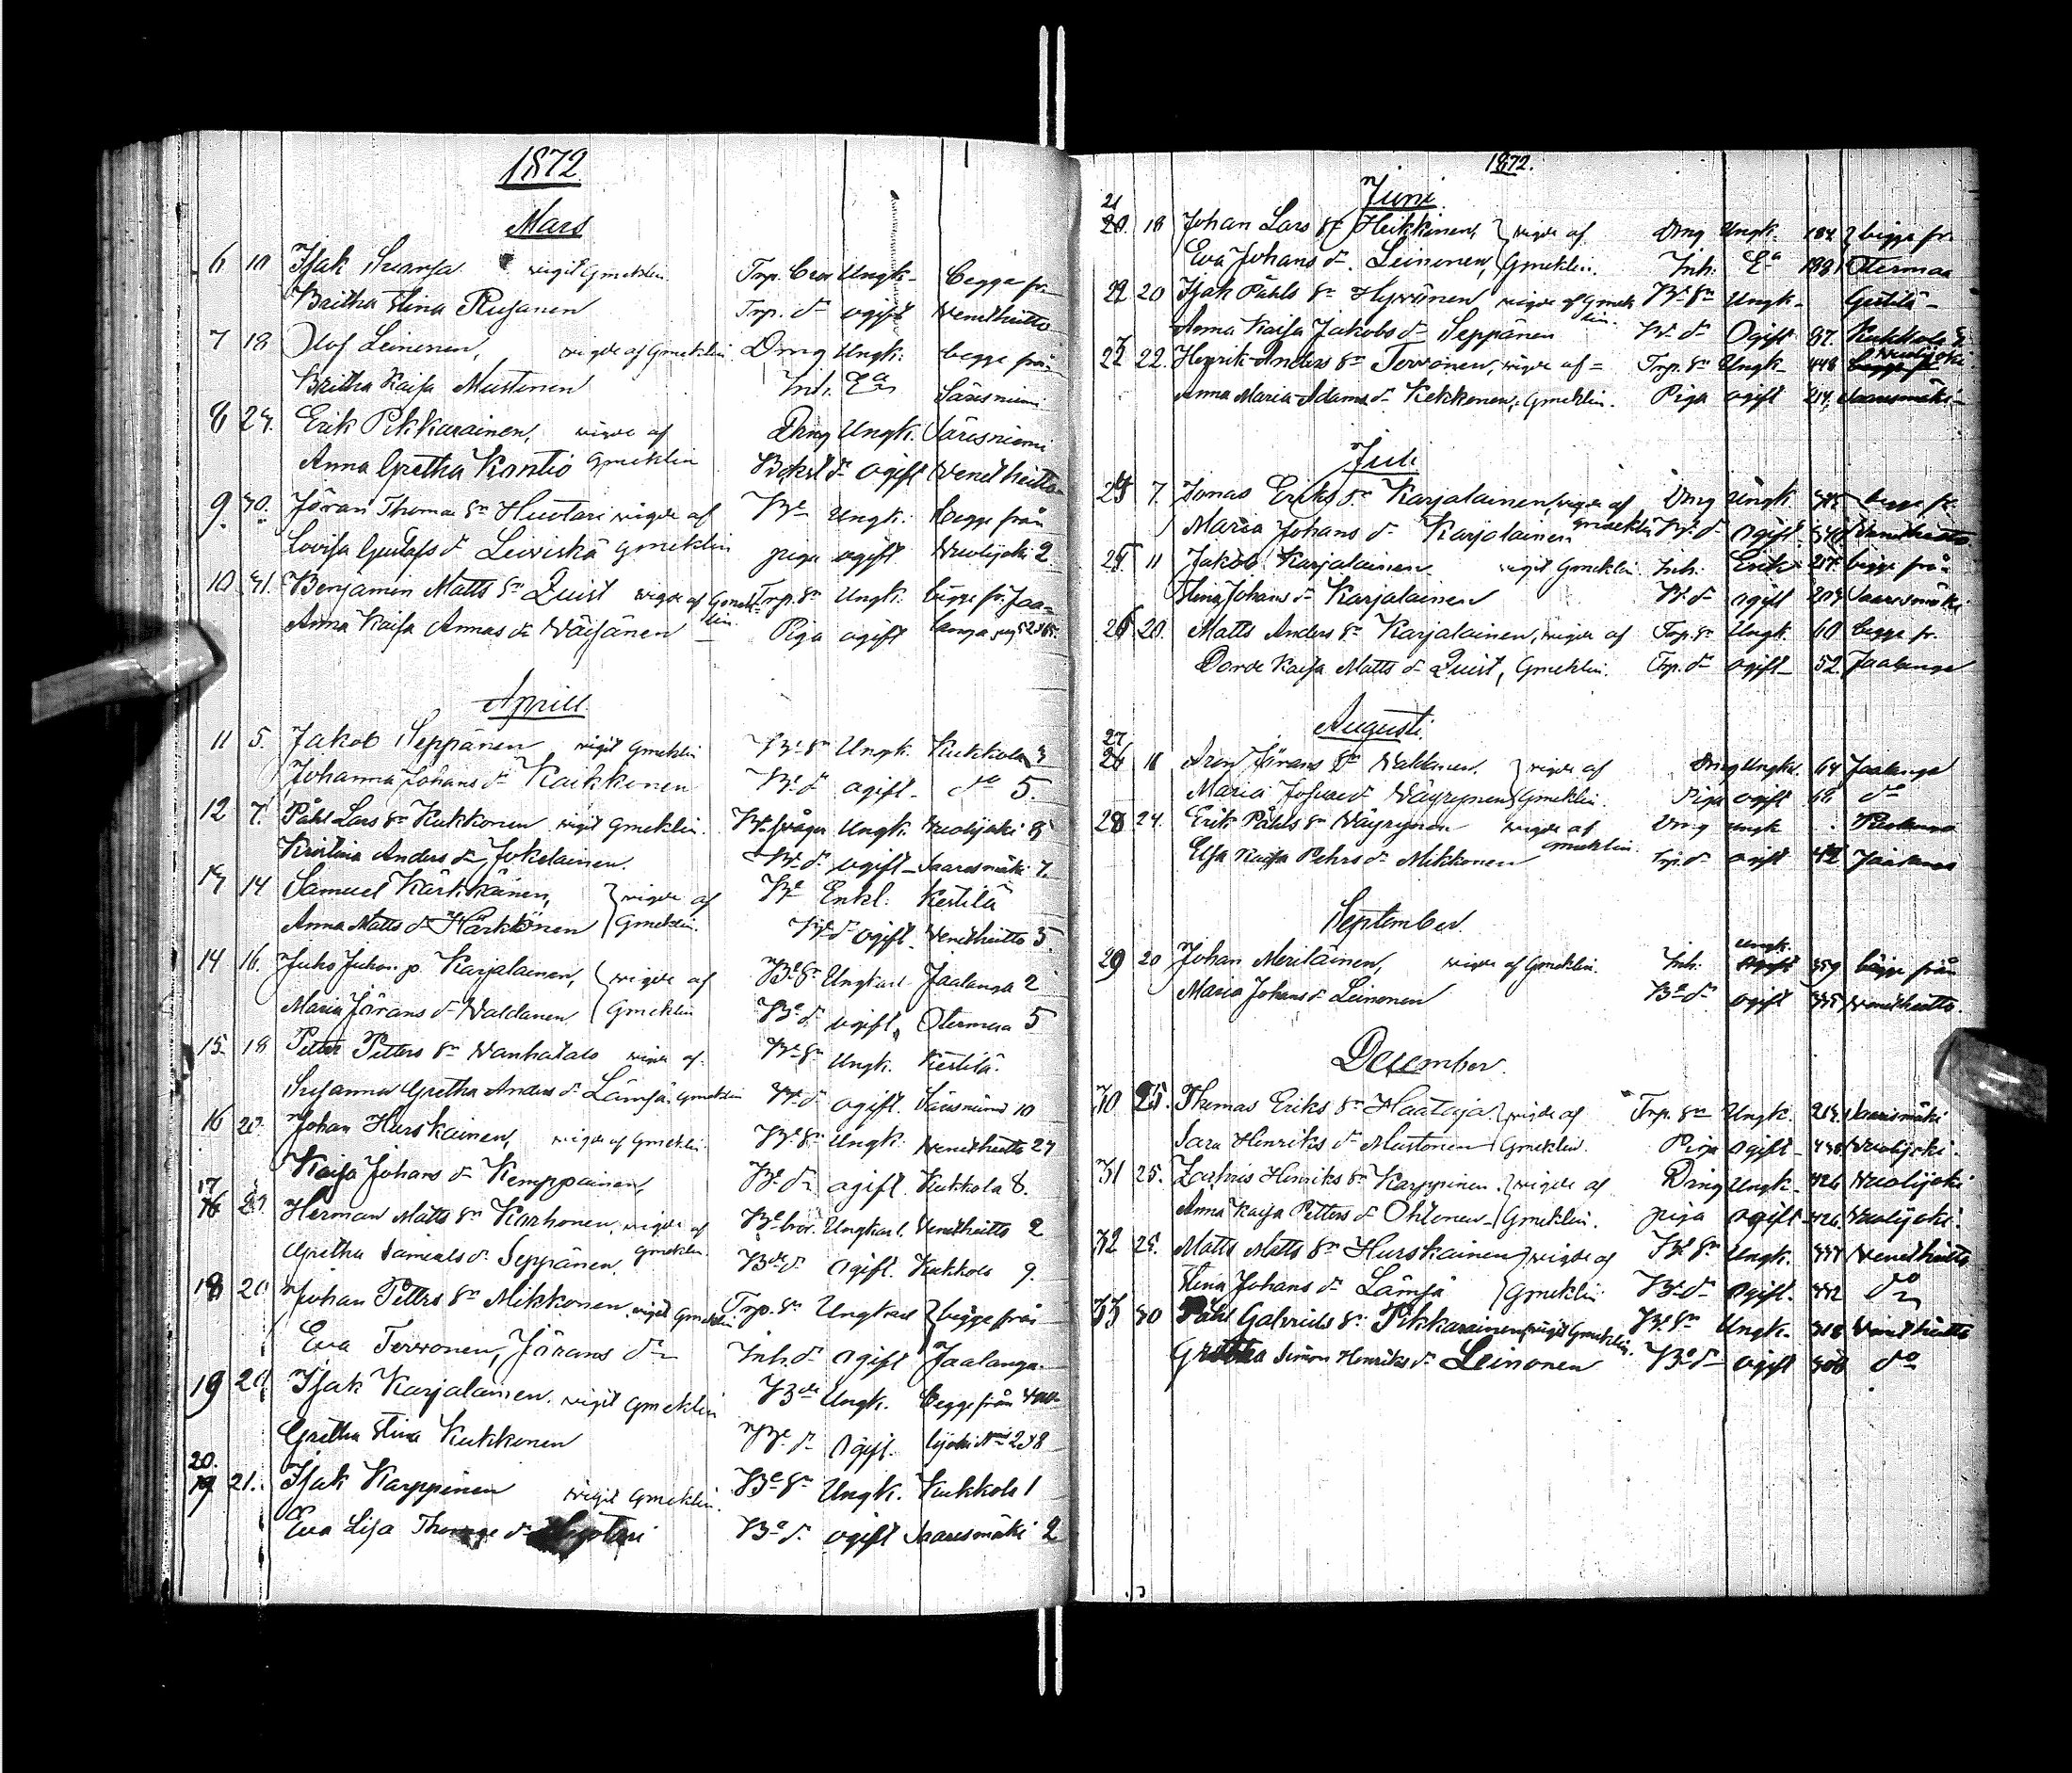 1872.
Mars
6 10 Isak Svansa vigde Gmeklin Trp. bror Ungk. begge fr.
Britha Stina Rusanen Trp. dr ogift Wenetheitto
7 18 Olof Leinonen, vigde af Gmeklin Dräng Ungk. begge från
Britha Kaisa Mustonen Inh. Ea Säresniemi
8 24. Erik Pikkarainen, vigde af Dräng Ungk. Säresniemi
Anna Gretha Kontio Gmeklin dr ogift Wenetheitto
9. 30. Jöran Thomas Sn Huotari vigde af Bde Ungk. begge från
Lovisa Gustafs dr Leviskä Gmeklin piga ogift Wuolijoki 2.
10 31. Benjamin Matts Sn Quist vigde af Gmeklin Trp. Sn Ungk. begge fr. Jaa-
Anna Kaisa Annas dr Väisänen Piga ogift langa
Aprill
11 5. Jakob Seppänen vigit Gmeklin Bd. Sn Ungk. Kukkola 3
Johanna Johans dr Kaikkonen Bd. dr ogift do 5.
12 7. Påhl Lars Sn Kukkonen vigit Gmeklin. Bd. svåger Ungk. Wuolijoki 8
Kristina Anders dr Jokelainen. Bd. dr ogift Saaresmäki 7.
13 14 Samuel Kärkkäinen, vigde af Bde Enkl. Kestilä
Anna Matts dr Härkönen Gmeklin. Bd. dr ogift. Wenetheitto 5.
14 16. Juho Juhon p. Karjalainen, vigde af Bd. Sn Ungkarl Jaalanga 2
Maria Jörans dr Waldanen Gmeklin Bd. dr ogift, Otermaa 5
15 18 Petter Petters Sn Wanhatalo vigde af Bd. Sn Ungk. Kestilä.
Susanna Gretha Anders dr Lämsä. Gmeklin Bd. dr ogift. Säresniemi 10
16 20 Johan Hurskainen, vigde af Gmeklin. Bd. Sn Ungk. Wenetheitto 27
Kaisa Johans dr Kemppainen, Bd. dr ogift. Kukkola 8.
17
16 20 Herman Matts Sn Korhonen, vigde af Bd. bror. Ungkarl. Wenetheitto 2
Gretha Samuels dr Seppänen. Gmeklin. Bd. dr ogift. Kukkola 9.
18 20 Johan Petters Sn Mikkonen, vigit Gmeklin Trp. Sn Ungkarl begge från
Eva Tervonen, Jörans dr Inh. dr ogift Jaalanga.
19 20 Isak Karjalainen. vigit Gmeklin Bde Ungk. begge från Wuo-
Gretha Stina Kukkonen Bd. dr ogift. lijoki
20.
19 21. Isak Karppinen vigit Gmeklin. Bd. Sn Ungk. Kukkola 1
Eva Lisa Thomas dr Huotari Bd. dr ogift Saaresmäki 2
1872.
Juni
21
20. 18 Johan Lars Sn Heikkinen, vigde af Dräng Ungk. 184 begge fr.
Eva Johans dr. Leinonen, Gmeklin. Inh. Ea Otermaa
22 20 Isak Påhls Sn Hyvönen vigde af Gmeklin. Bd. Sn Ungk. Gestilä
Anna Kaisa Jakobs dr Seppänen Bd. dr Ogift 87. Kukkola
22. Henrik Anders Sn Tervonen, vigde af Trp. Sn Ungk. 448 Wuolijoki
Anna Maria Adams dr Kekkonen, Gmeklin. Piga ogift 214. Saaresmäki
Juli
24 7. Jonas Eriks Sn Karjalainen, vigde af Dräng Ungk. begge fr.
Maria Johans dr Karjalainen Gmeklin Bd. dr ogift. 340 Wenetheitto
25 11 Jakob Karjalainen vigit Gmeklin Inh. Enkl. 217. begge från
Stina Johans dr Karjalainen Bd. dr ogift Saaresmäki
26 20. Matts Anders Sn Karjalainen, vigde af Trp. Sn Ungk. 60 begge fr.
Kaisa Matts dr Quist, Gmeklin. Trp. dr ogift 52. Jaalanga
Augusti
27
26 11 Aron Jörans Sn Waldanen. vigde af Dräng Ungk. 64 Jaalanga
Maria dr Väyrynen Gmeklin. Piga ogift 68 do
28 24. Erik Påhls Sn Väyrynen vigde af Dräng Ungk.
Elsa Kaisa Pehrs dr Mikkonen Gmeklin. Trp. dr ogift 42 Jaalanga
September.
29 20 Johan Meriläinen, vigde af Gmeklin. Inh. Ungk. 359 bägge från
Maria Johans dr Leinonen Bd. dr ogift 335 Wenetheitto.
December.
30 25. Thomas Eriks Sn Haataja vigde af Trp. Sn Ungk. Saaresmäki
Sara Henriks dr Mustonen Gmeklin. Piga ogift Wuolijoki.
31 25. Zachris Henriks Sn Karppinen. vigde af Dräng Ungk. 426 Wuolijoki
Anna Kaisa Petters dr Ohtonen Gmeklin. piga ogift 426. Wuolijoki.
32 25. Matts Matts Sn Hurskainen vigde af Bd. Sn Ungk. Wenetheitto
Stina Johans dr Lämsä Gmeklin Bd. dr ogift. do
33 30 Påhl Gabriels Sn Pikkarainen, vigit Gmeklin. Bd. Sn Ungk. 318 Wenetheitto
Gretha Simon Henriks dr Leinonen Bd. dr ogift 306 do